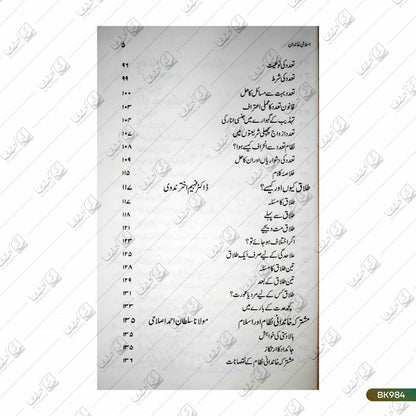 اسلامی خاندان ۵
تعدد کی نوعیت ۹۶
تعدد کی شرط ۹۹
تعدد بہت سے مسائل کا حل ۱۰۰
قانون تعدد کا عملی اعتراف ۱۰۳
تہذیب کے گہوارے میں جنسی انارکی ۱۰۴
تعدد ازدواج پچھلی شریعتوں میں ۱۰۷
نظام تعدد سے انحراف کیسے ہوا؟ ۱۰۸
تعدد کی دشواریاں اور ان کا حل ۱۰۹
خلاصۂ کلام ۱۱۵
طلاق کیوں اور کیسے؟ ڈاکٹر فہیم اختر ندوی ۱۱۷
طلاق کا مسئلہ ۱۱۷
طلاق سے پہلے ۱۱۸
طلاق مت دیجیے ۱۲۱
اگر اختلاف ہو جائے تو؟ ۱۲۳
علاحدگی کے لیے صرف ایک طلاق ۱۲۵
تین طلاق کا مسئلہ ۱۲۸
تین طلاق کے بعد ۱۲۹
طلاق کس کے لیے مرد یا عورت؟ ۱۳۱
کچھ عدت کے بارے میں ۱۳۳
مشترکہ خاندانی نظام اور اسلام مولانا سلطان احمد اصلاحی ۱۳۵
بالادستی کی خواہش ۱۳۵
جائداد کا ارتکاز ۱۳۵
مشترکہ خاندانی نظام کے نقصانات ۱۳۶
BK984